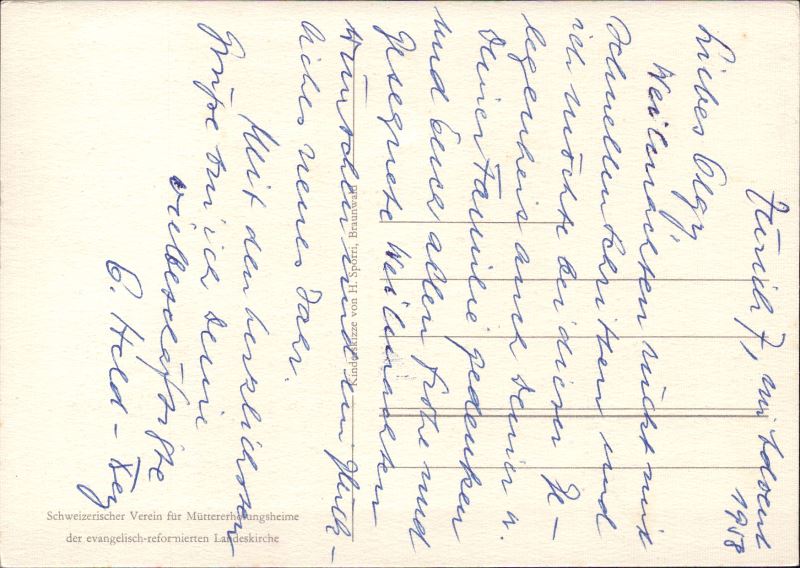 Zürich 7, im Advent
1958
Liebes Olgy,
Weihnachten rückt mit
Schnellschritten und
ich möchte bei dieser Ge-
legenheit auch deiner u.
deiner Familie gedenken
und Euch allen frohe und
gesegnete Weihnachten
wünschen und ein glück-
liches neues Jahr.
Mit den herzlichsten
Grüsse bin ich deine
vielbeschäftigte
C. Held-Key
Kinderskizze von H. Spörri, Braunwald
Schweizerischer Verein für Müttererholungsheime
der evangelisch-reformierten Landeskirche